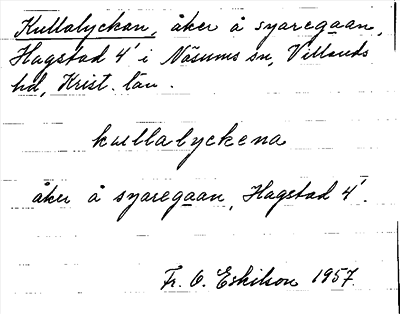 Kullalyckan, åker å syaregaan,
Hagstad 4¹ i Näsums sn, Villands
hd, Krist. län.
kullalyckena
åker å syaregaan, Hagstad 4¹.
Fr. O. Eskilson 1957.